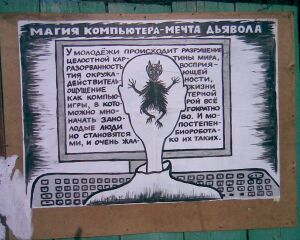 МАГИЯ КОМПЬЮТЕРА-МЕЧТА ДЬЯВОЛА
У МОЛОДЁЖИ ПРОИСХОДИТ РАЗРУШЕНИЕ
ЦЕЛОСТНОЙ КАРТИНЫ МИРА,
РАЗОРВАННОСТЬ ВОСПРИЯ-
ТИЯ ОКРУЖАЮЩЕЙ
ДЕЙСТВИТЕЛЬНОСТИ,
ОЩУЩЕНИЕ ЖИЗНИ
КАК КОМПЬЮТЕРНОЙ
ИГРЫ, В КОТОРОЙ ВСЁ
МОЖНО МНОГОКРАТНО
НАЧАТЬ ЗАНОВО. И МО-
ЛОДЫЕ ЛЮДИ ПОСТЕПЕН-
НО СТАНОВЯТСЯ БИОРОБОТА-
МИ, И ОЧЕНЬ ЖАЛКО ИХ ТАКИХ.